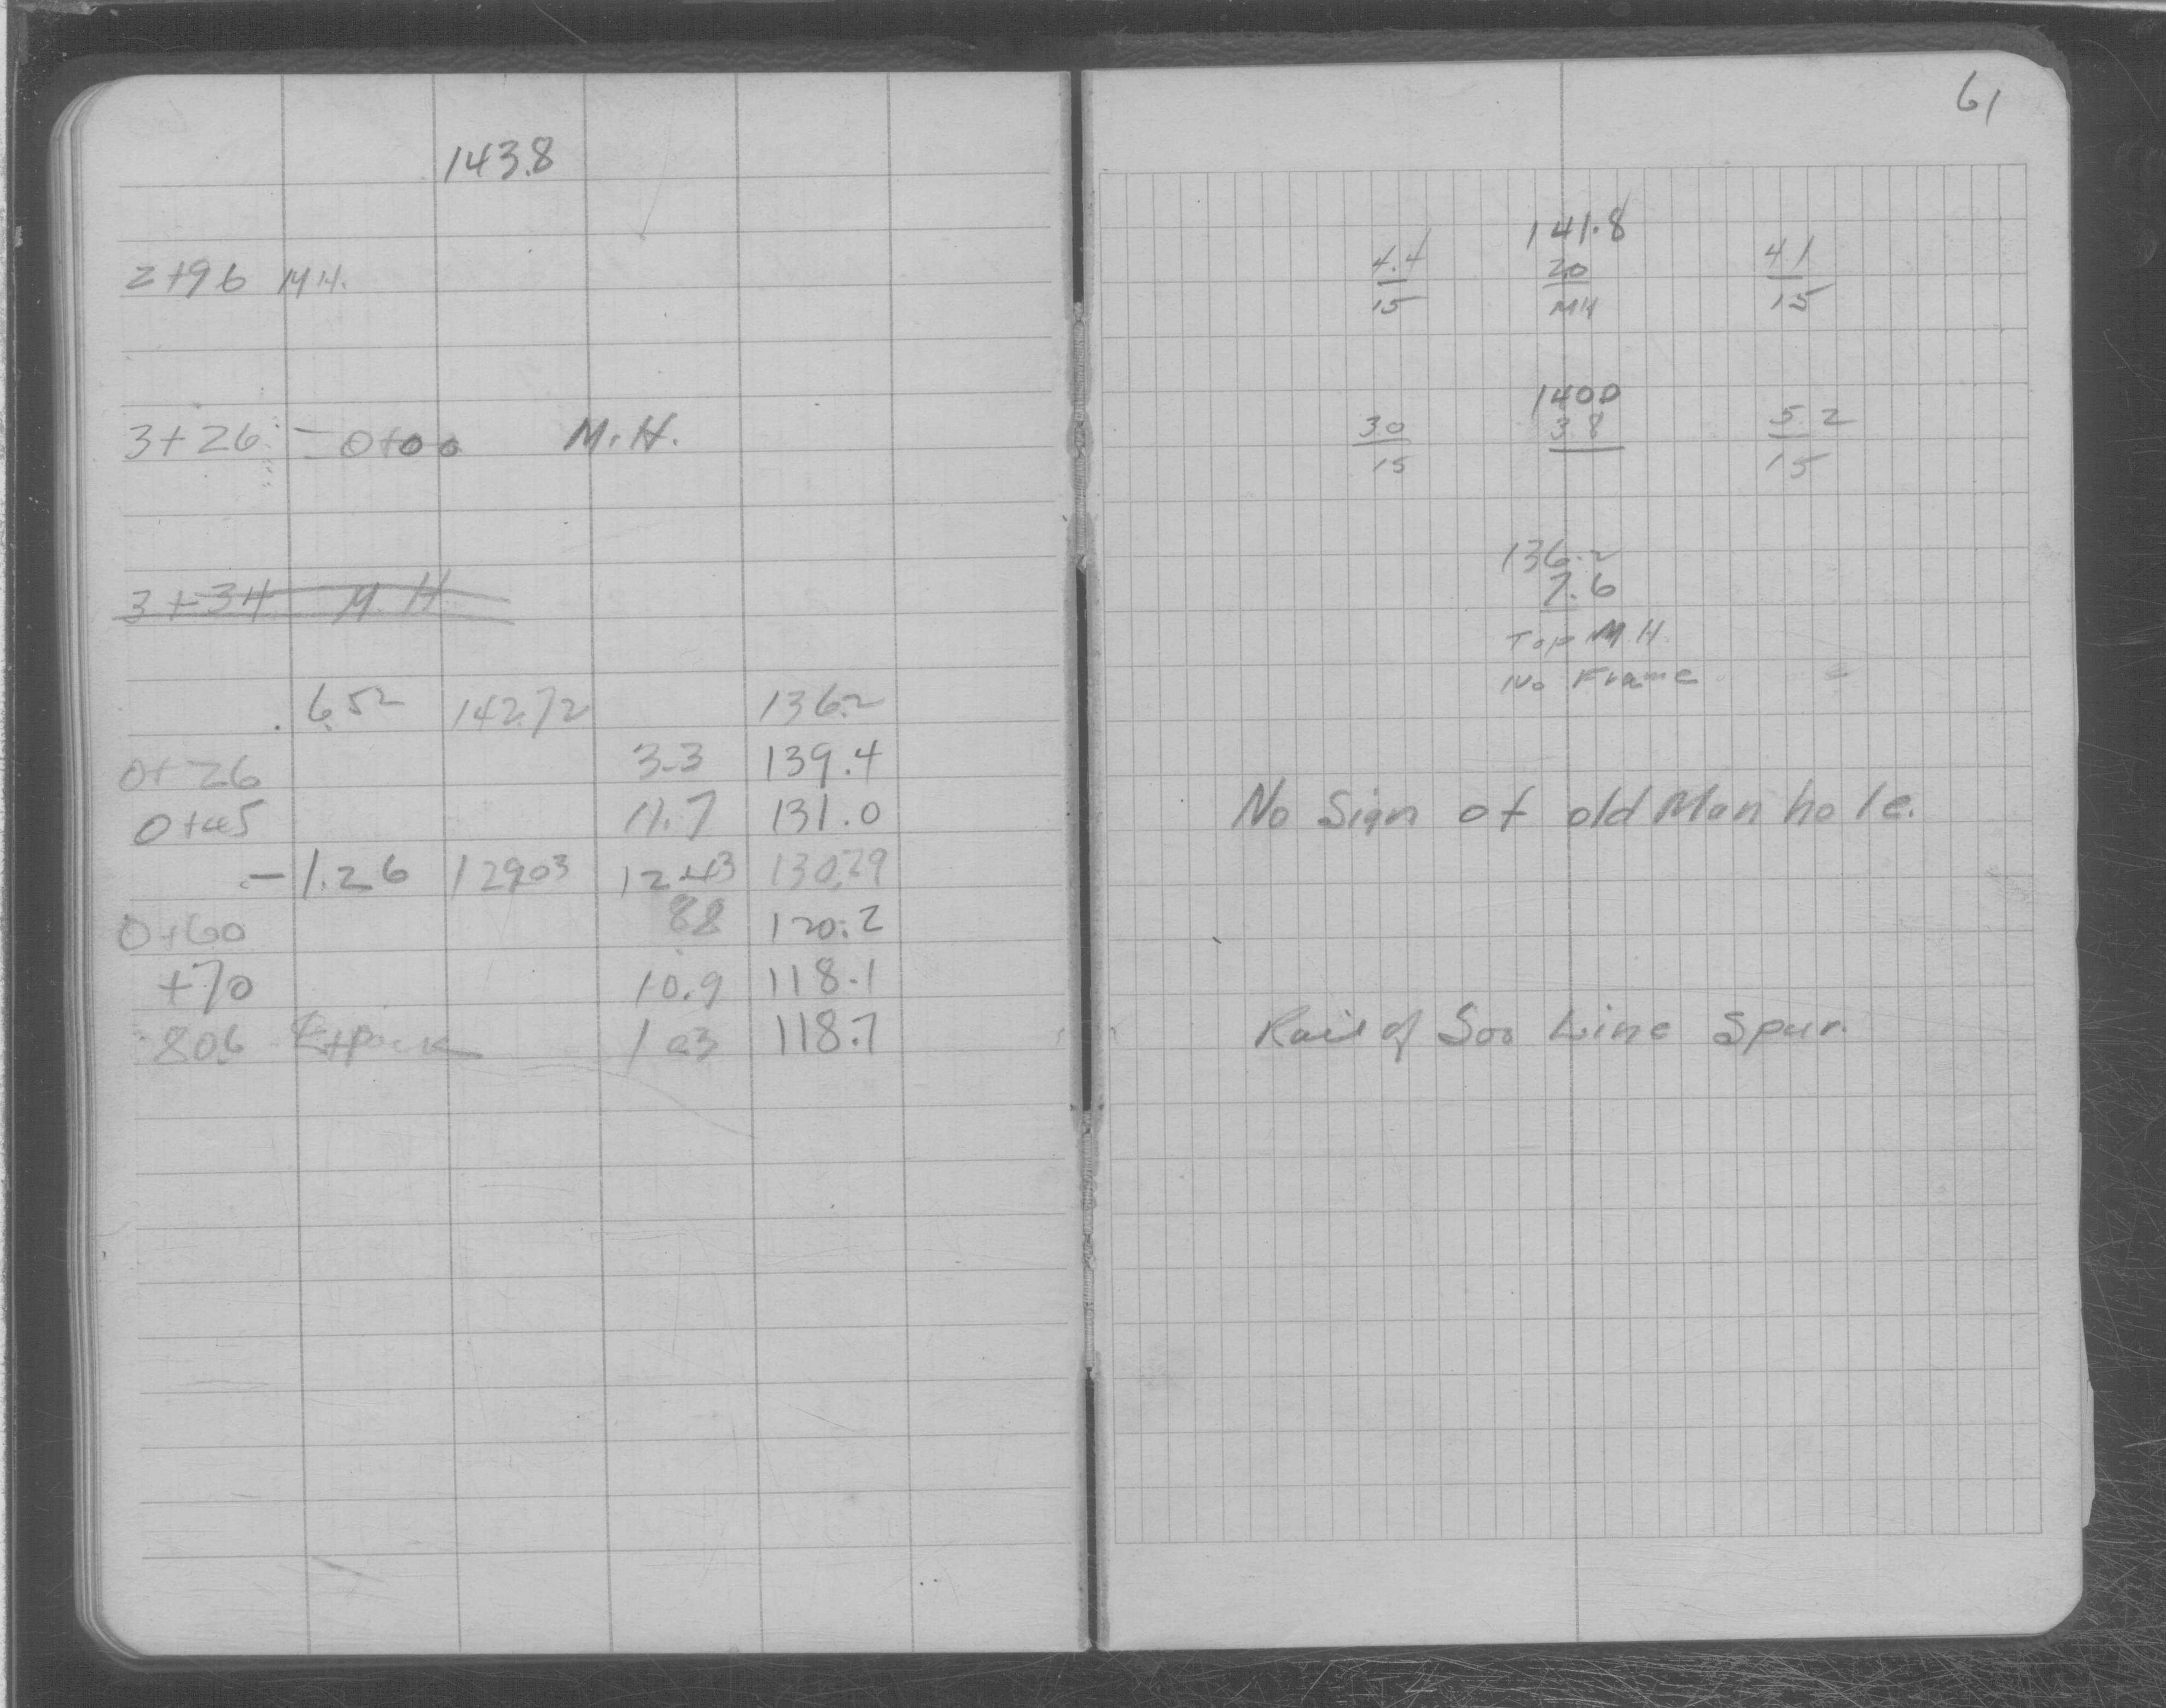 143.8
2+96 M.H.
3+26 = 0+00 M.H.
3+34 M.H.
6.52 142.72 136.2
0+26 3.3 139.4
0+45 11.7 131.0
- 1.26 129.03 12.43 130.29
0+60 8.8 120.2
+70 10.9 118.1
80.6 10.3 118.7
61
141.8
4.4 2.0 4.1
15 MH 15
140.0
3.0 3.8 5.2
15 15
136.2
7.6
Top M.H.
No Frame
No Sign of old Man hole.
Rail of Soo Line Spur.